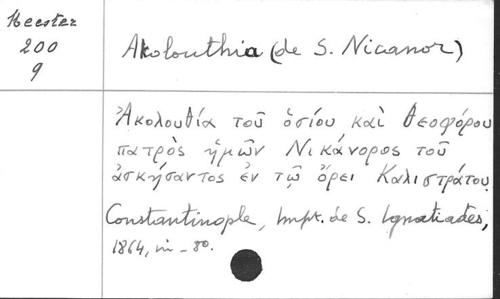 Meester
200
9
Akolouthia (de S. Nicanor)
Ἀκολουθία τοῦ ὁσίου καὶ θεοφόρου
πατρὸς ἡμῶν Νικάνορος τοῦ
ἀσκήσαντος ἐν τῷ ὄρει Καλιστράτου.
Constantinople, Impr. de S. Ignatiades,
1864, in-8o.